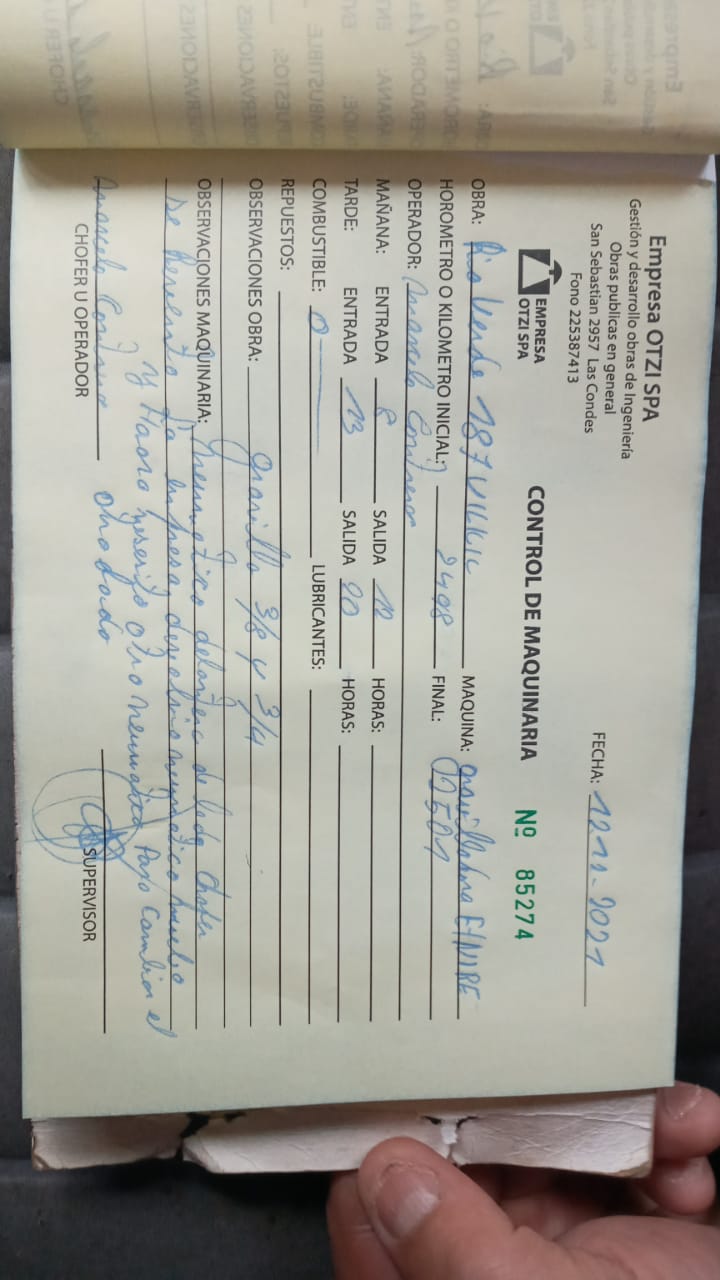 Empresa OTZI SPA
Gestión y desarrollo obras de Ingeniería
Obras publicas en general
San Sebastian 2957 Las Condes
Fono 225387413
EMPRESA
OTZI SPA
FECHA: 12-12-2021
CONTROL DE MAQUINARIA Nº 85274
OBRA: Rio Verde 187 VILKIC MAQUINA: gravilladora ETNIRE
HOROMETRO O KILOMETRO INICIAL: 2498 FINAL: 02501
OPERADOR: Marcelo Contrera
MAÑANA: ENTRADA 8 SALIDA 12 HORAS:
TARDE: ENTRADA 13 SALIDA 20 HORAS:
COMBUSTIBLE: 0 LUBRICANTES:
REPUESTOS:
OBSERVACIONES OBRA: gravilla 3/8 y 3/4
OBSERVACIONES MAQUINARIA: Neumatico delantero de lado chofer
se Revento La empresa, devolvio neumatico nuebo
y Haora nesesito otro neumatico Para Cambiar el
Marcelo Contrera
CHOFER U OPERADOR SUPERVISOR